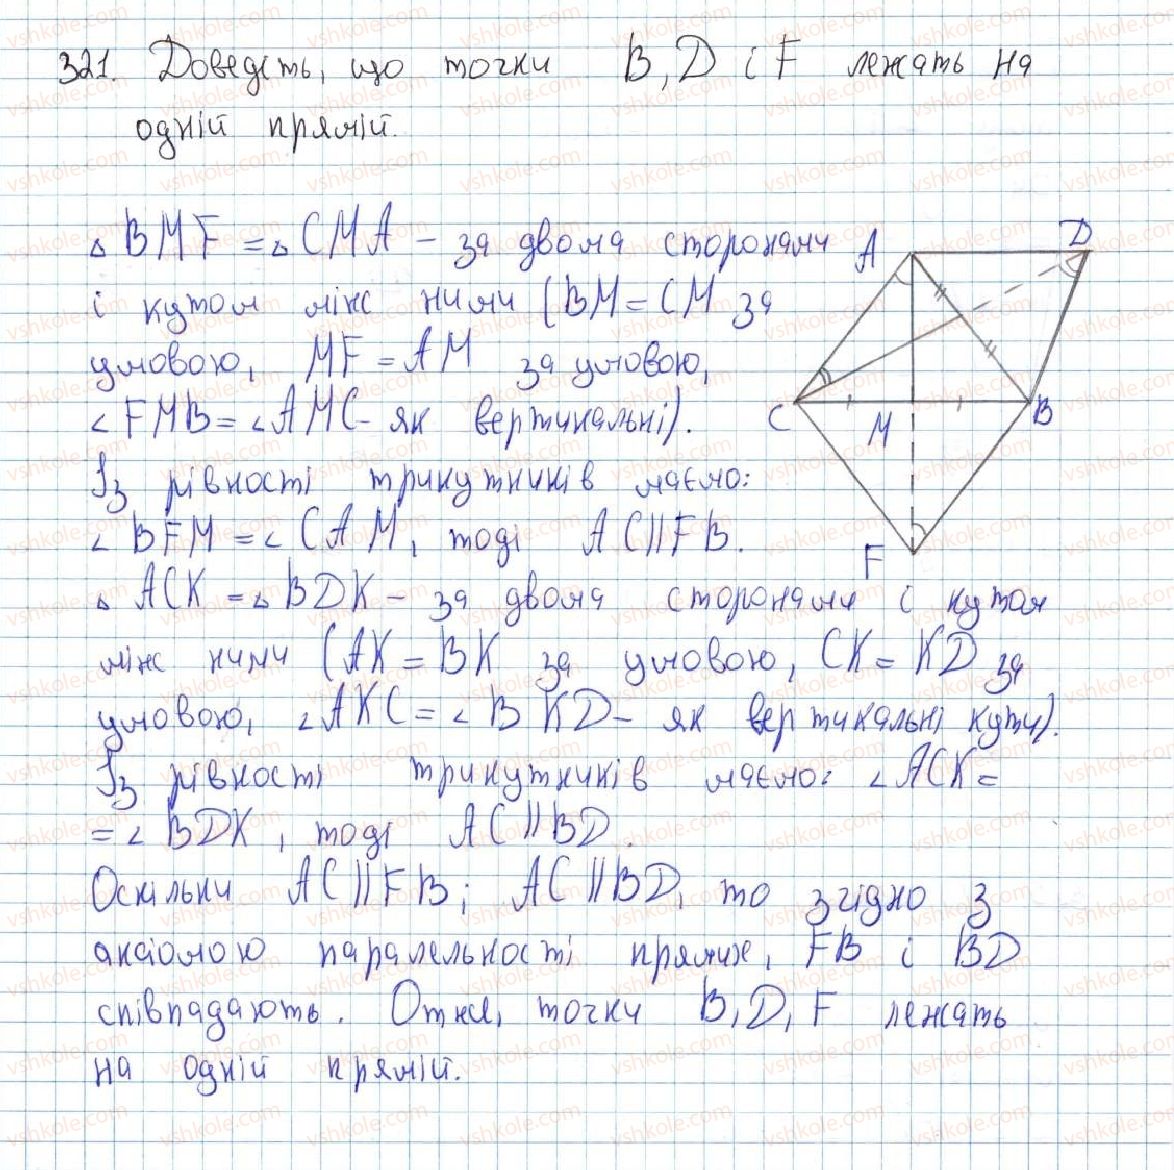 321. Доведіть, що точки B, D і F лежать на
одній прямій.
△BMF = △CMA – за двома сторонами
і кутом між ними (BM = CM за
умовою, MF = AM за умовою,
∠FMB = ∠AMC – як вертикальні).
Із рівності трикутників маємо:
∠BFM = ∠CAM, тоді AC || FB.
△ACK = △BDK – за двома сторонами і кутом
між ними (AK = BK за умовою, CK = KD за
умовою, ∠AKC = ∠BKD – як вертикальні кути).
Із рівності трикутників маємо: ∠ACK =
= ∠BDK, тоді AC || BD.
Оскільки AC || FB; AC || BD, то згідно з
аксіомою паралельності прямих, FB і BD
співпадають. Отже, точки B, D, F лежать
на одній прямій.
A
D
C
M
B
F